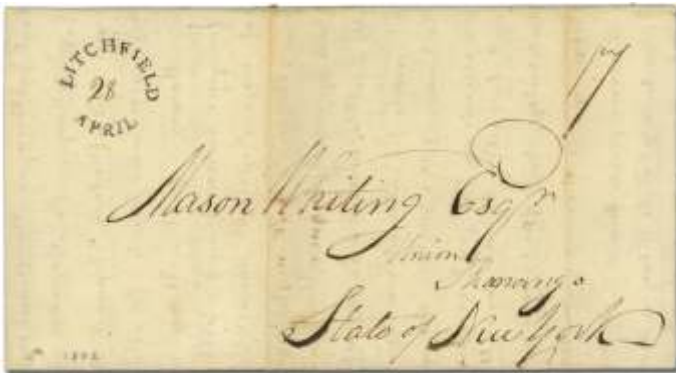 LITCHFIELD
28
APRIL
17
Mason Whiting Esqr
Union
State of New York
1802